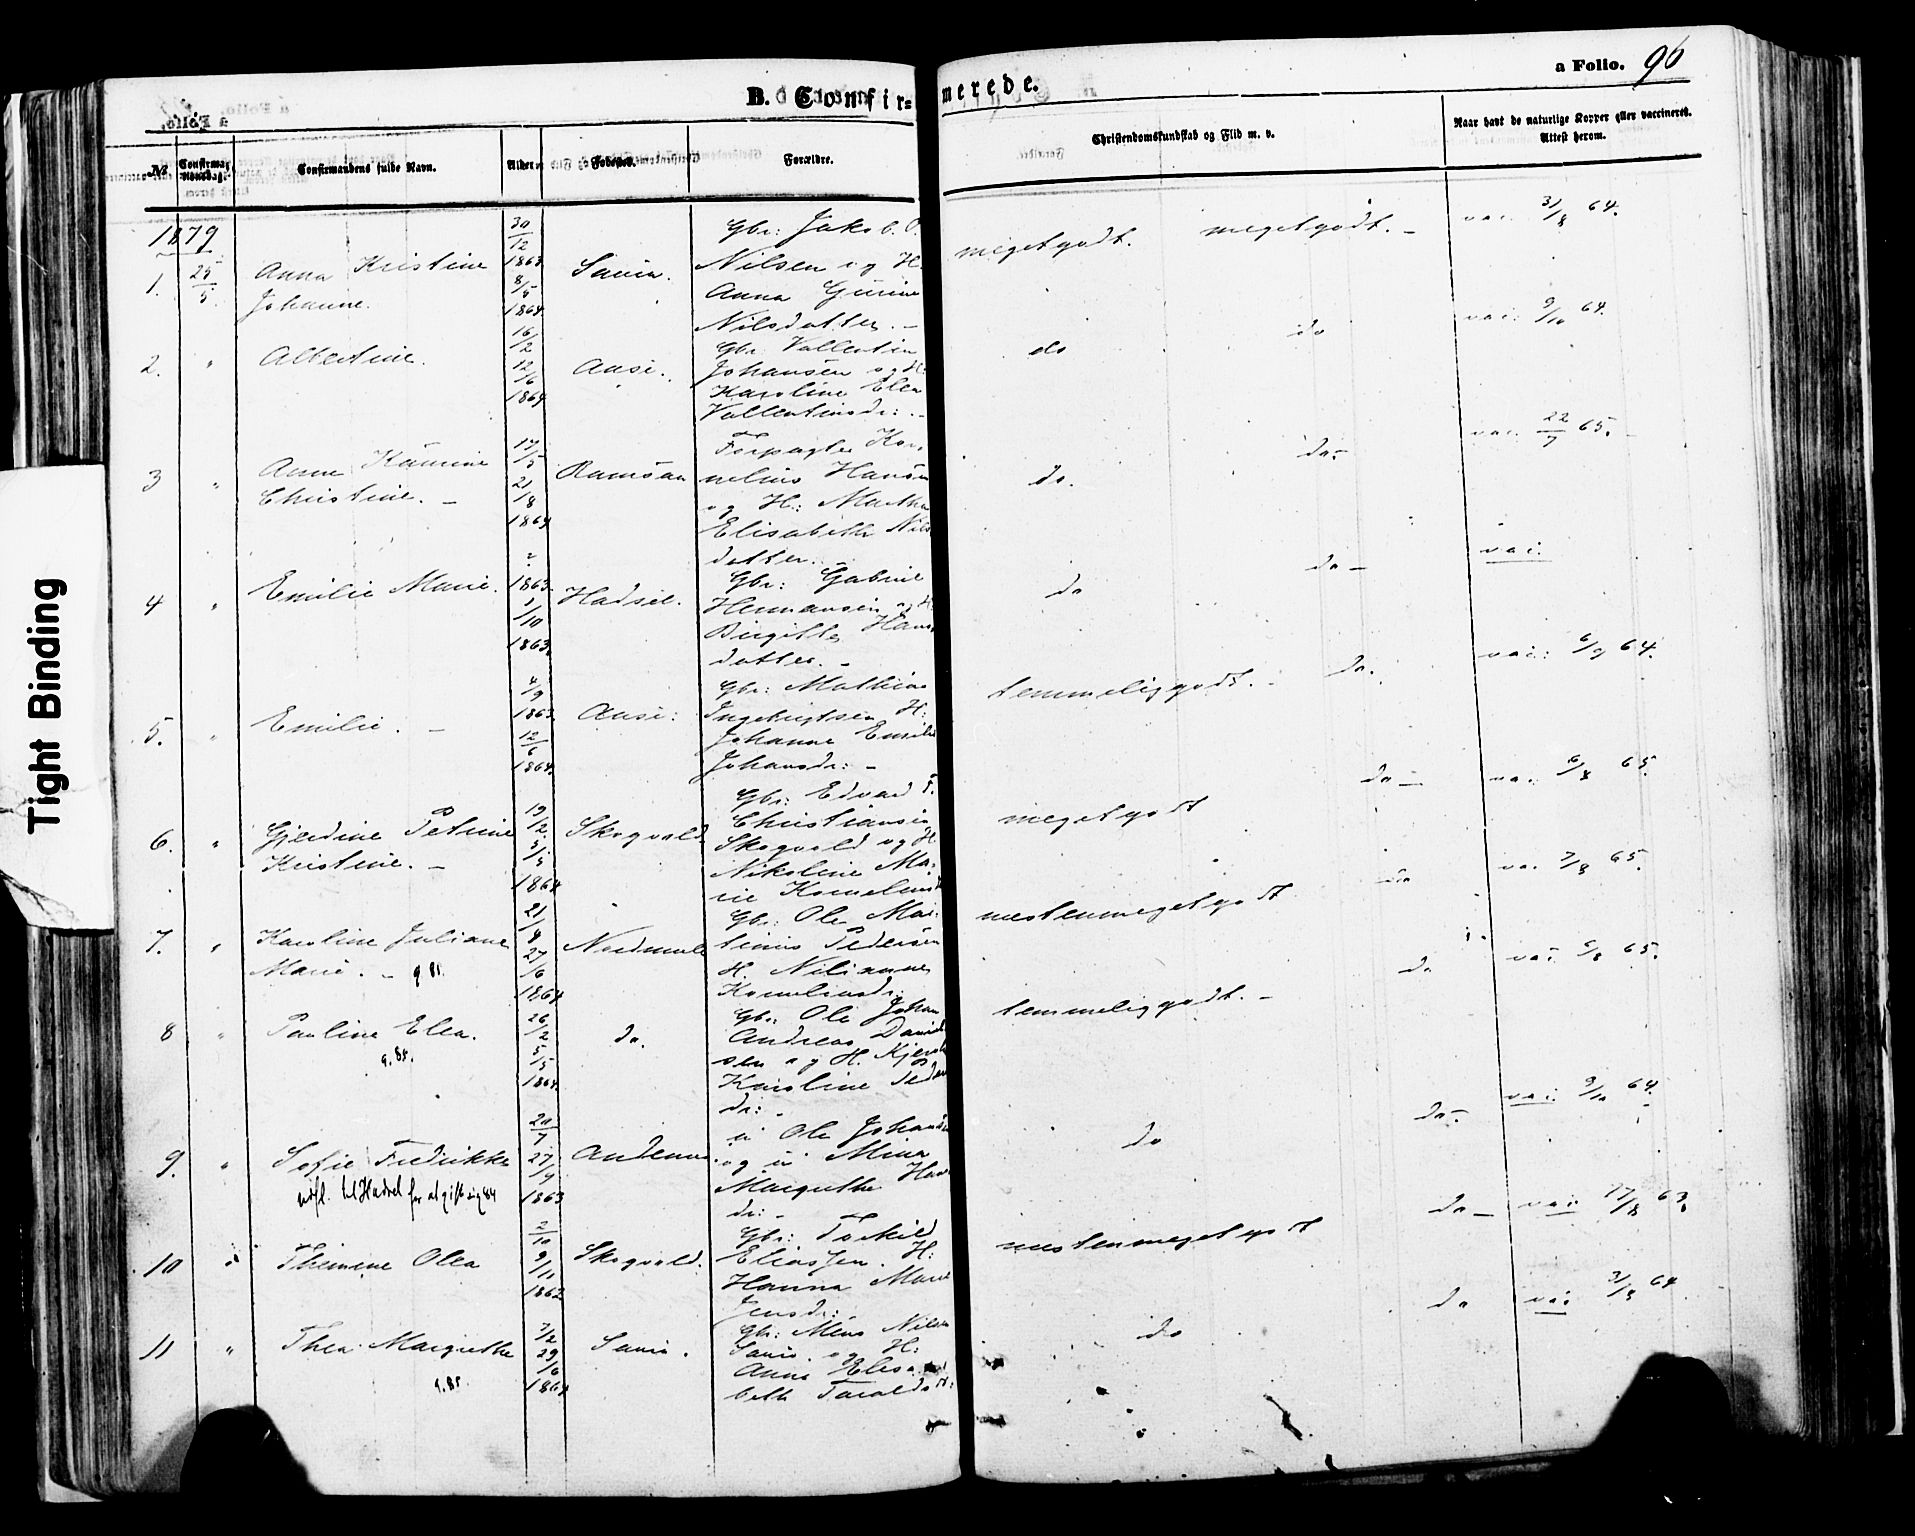 B. Confir=
merede.
a Folio. 96
No
Confirma-
tionsdag.
Confirmandens fulde Navn.
Alder
Fødested.
Forældre.
Christendomskundskab og Flid m. v.
Naar havt de naturlige Kopper eller vaccineret.
Attest herom.
1879
1. 25/5 Anna Kristine
Johanne.
30/12
1863
8/5
1864
Gbr: Jakob
Nilsen og H.
Anna Gurine
Nilsdatter. -
megetgodt. megetgodt. - vac. 31/8 64.
2. " Albertine.
16/2
12/6
1864
Aase.
Gbr. Vallentin
Johansen og H.
Karoline Elen
Vallentinsdr: -
do do vac. 9/10 64.
3 " Anne
Christine. -
17/5
21/8
1864
Ramsaa
Forpagter Kor-
nelius Hansen
og H: Martha
Elisabeth Nils
datter. -
do. do- vac. 22/7 65.
4 " Emilie Marie.
1863
1/10
1863
Hadsel.
Gbr: Gabriel
Hermansen og H
Birgitte Hans
datter. -
do do - vac.
5. " Emilie. -
4/9
1863
12/6
1864
Aase:
Gbr: Mathias
Ingebrigtsen H:
Johanne Emilie
Johansdr: -
temmeliggodt. - do. vac: 6/9 64.
6. " Gjerdine Petrine
Kristine. -
19/2
5/5
1864
Skogvold
Gbr: Edvard
Christiansen
Skogvold og H
Nikoline Ma-
rie Kornelius
megetgodt do - vac. 6/8 65.
7. " Karoline Juliane
Marie. - g 81.
27/6
1864
Nordmele
Gbr: Ole Mar-
tinus Pedersen
H. Nilianne
Korneliusdr:
næstenmegetgodt do vac. 7/8 65.
8 " Pauline Elea.
g. 85.
26/2
5/5
1864
do.
Gbr: Ole Johan
Andreas Daniel
sen og H. Kjerst
Karoline Peder
dr: -
temmeliggodt. - do vac. 6/8 65.
9. " Sofie Fredrikke
udfl. til Hadsel for at gifte sig 84
20/7
27/9
1863
Andenes
u Ole Johansen
og u Mina
Margrethe Hans
dr: -
do do- vac. 9/10 64.
10 " Thimine Olea
2/10
9/11
1862
Skogvold.
Gbr: Torkild
Eliassen. H:
Hanna Marie
Jensdr:
næstenmegetgodt do - vac: 17/8 63.
11 " Thea Margrethe
g. 85
7/2
29/6
1864
Gbr: Mens Nilsen
og H:
Anne Elisa
beth Taraldsdt:
do do vac 31/8 64
Tight Binding